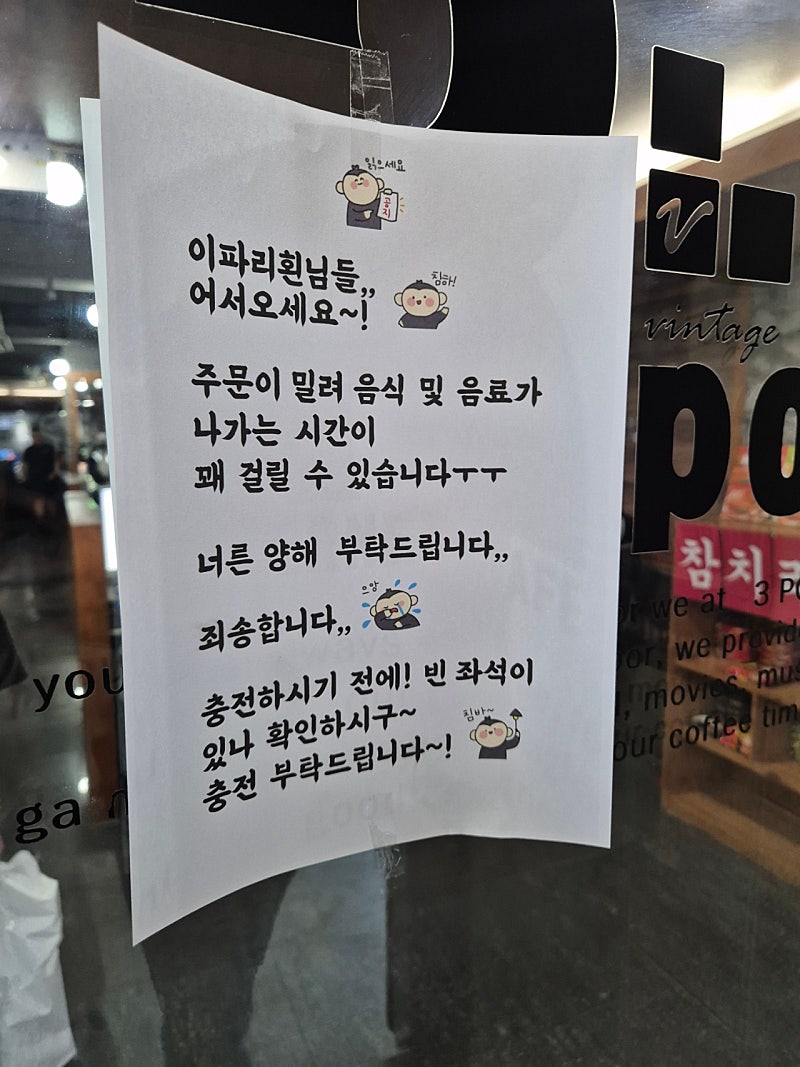 읽으세요
공지
이파리횐님들,,
어서오세요~!
침하!
주문이 밀려 음식 및 음료가
나가는 시간이
꽤 걸릴 수 있습니다ㅜㅜ
너른 양해 부탁드립니다,,
으앙
죄송합니다,,
충전하시기 전에! 빈 좌석이
있나 확인하시구~
침바~
충전 부탁드립니다~!
v
vintage
po
참치
or we at 3 PO
oor, we provid
, movies, mus
our coffee tim
you
ga